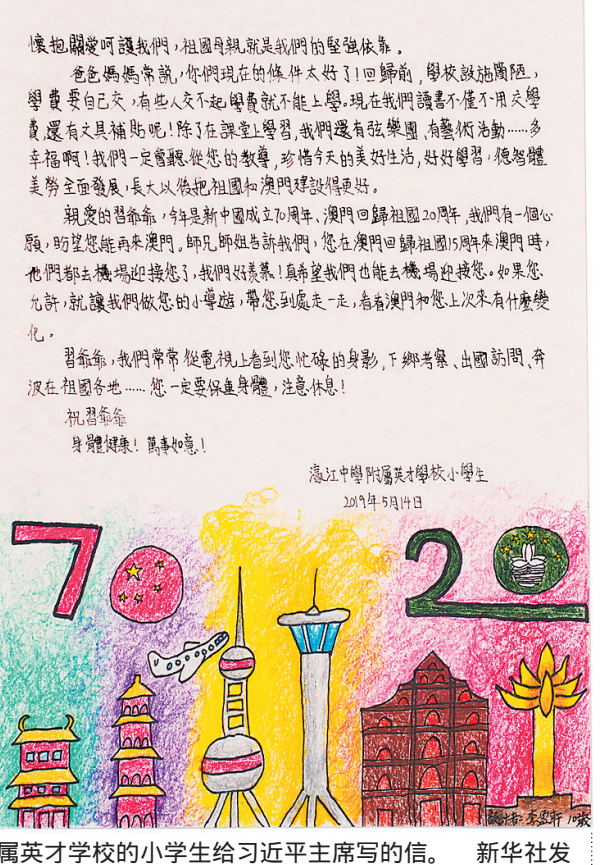 懷抱關愛呵護我們，祖國母親就是我們的堅強依靠。
爸爸媽媽常說，你們現在的條件太好了！回歸前，學校設施簡陋，
學費要自己交，有些人交不起學費就不能上學。現在我們讀書不僅不用交學
費，還有文具補貼呢！除了在課堂上學習，我們還有弦樂團、有藝術活動……多
幸福啊！我們一定會聽從您的教導，珍惜今天的美好生活，好好學習，德智體
美勞全面發展，長大以後把祖國和澳門建設得更好。
親愛的習爺爺，今年是新中國成立70周年、澳門回歸祖國20周年，我們有一個心
願，盼望您能再來澳門。師兄師姐告訴我們，您在澳門回歸祖國15周年來澳門時，
他們都去機場迎接您了，我們好羨慕！真希望我們也能去機場迎接您。如果您
允許，就讓我們做您的小導遊，帶您到處走一走，看看澳門和您上次來有什麼變
化。
習爺爺，我們常常從電視上看到您忙碌的身影，下鄉考察、出國訪問、奔
波在祖國各地……您一定要保重身體，注意休息！
祝習爺爺
身體健康！萬事如意！
濠江中學附屬英才學校小學生
2019年5月14日
70 20
設計者：李 軒 10歲
属英才学校的小学生给习近平主席写的信。 新华社发